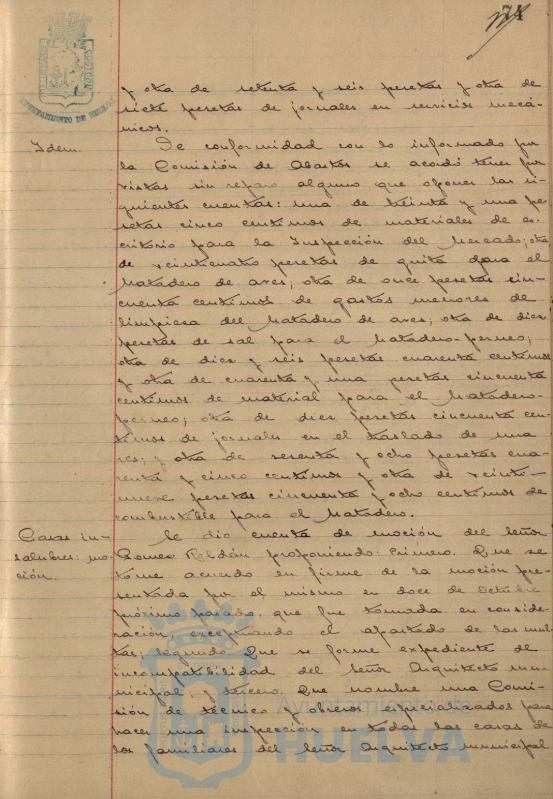 74
AYUNTAMIENTO DE HUELVA
y otra de setenta y seis pesetas y otra de
siete pesetas de jornales en servicios mecá-
nicos.
Idem.
De conformidad con lo informado por
la Comisión de Abastos se acordó tener por
vistas sin reparo alguno que oponer las si-
guientes cuentas: una de treinta y una pe-
setas cinco centimos de materiales de es-
critorio para la Inspección del Mercado; otra
de veinticuatro pesetas de guita para el
Matadero de aves; otra de once pesetas cin-
cuenta centimos de gastos menores de
limpiesa del Matadero de aves; otra de diez
pesetas de sal para el Matadero-porneo;
otra de diez y seis pesetas cuarenta centimos
y otra de cuarenta y una pesetas cincuenta
centimos de material para el Matadero-
porneo; otra de diez pesetas cincuenta cen-
timos de jornales en el traslado de una
res; y otra de sesenta y ocho pesetas cua-
renta y cinco centimos y otra de veinti-
nueve pesetas cincuenta y ocho centimos de
combustible para el Matadero.
Casas in-
salubres: mo-
ción.
Se dio cuenta de moción del Señor
Gomez Roldán proponiendo: Primero. Que se
tome acuerdo en firme de la moción pre-
sentada por el mismo en doce de Octubre
próximo pasado, que fue tomada en conside-
ración, exceptuando el apartado de las mul-
tas; segundo. Que se forme expediente de
incompatibilidad del Señor Arquitecto mu-
nicipal; y tercero. Que nombre una Comi-
sión de técnico y obreros especializados para
hacer una inspección en todas las casas de
los familiares del Señor Arquitecto municipal
Ayuntamiento de
HUELVA